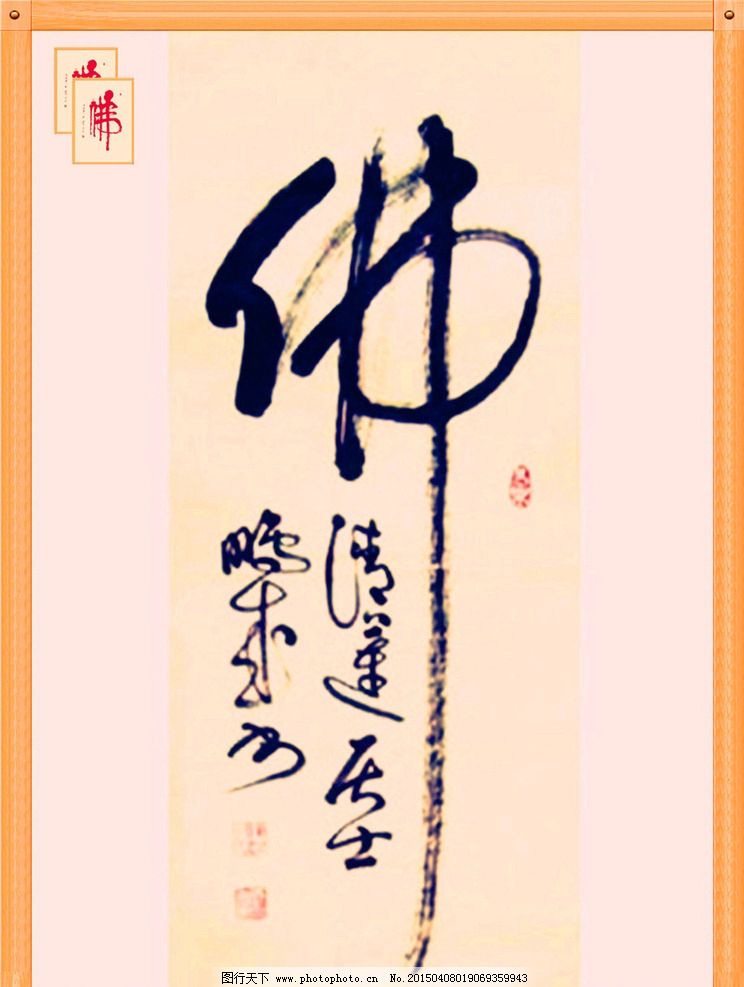 佛
佛
佛
清莲居士
图行天下 www.photophoto.cn No.20150408019069359943